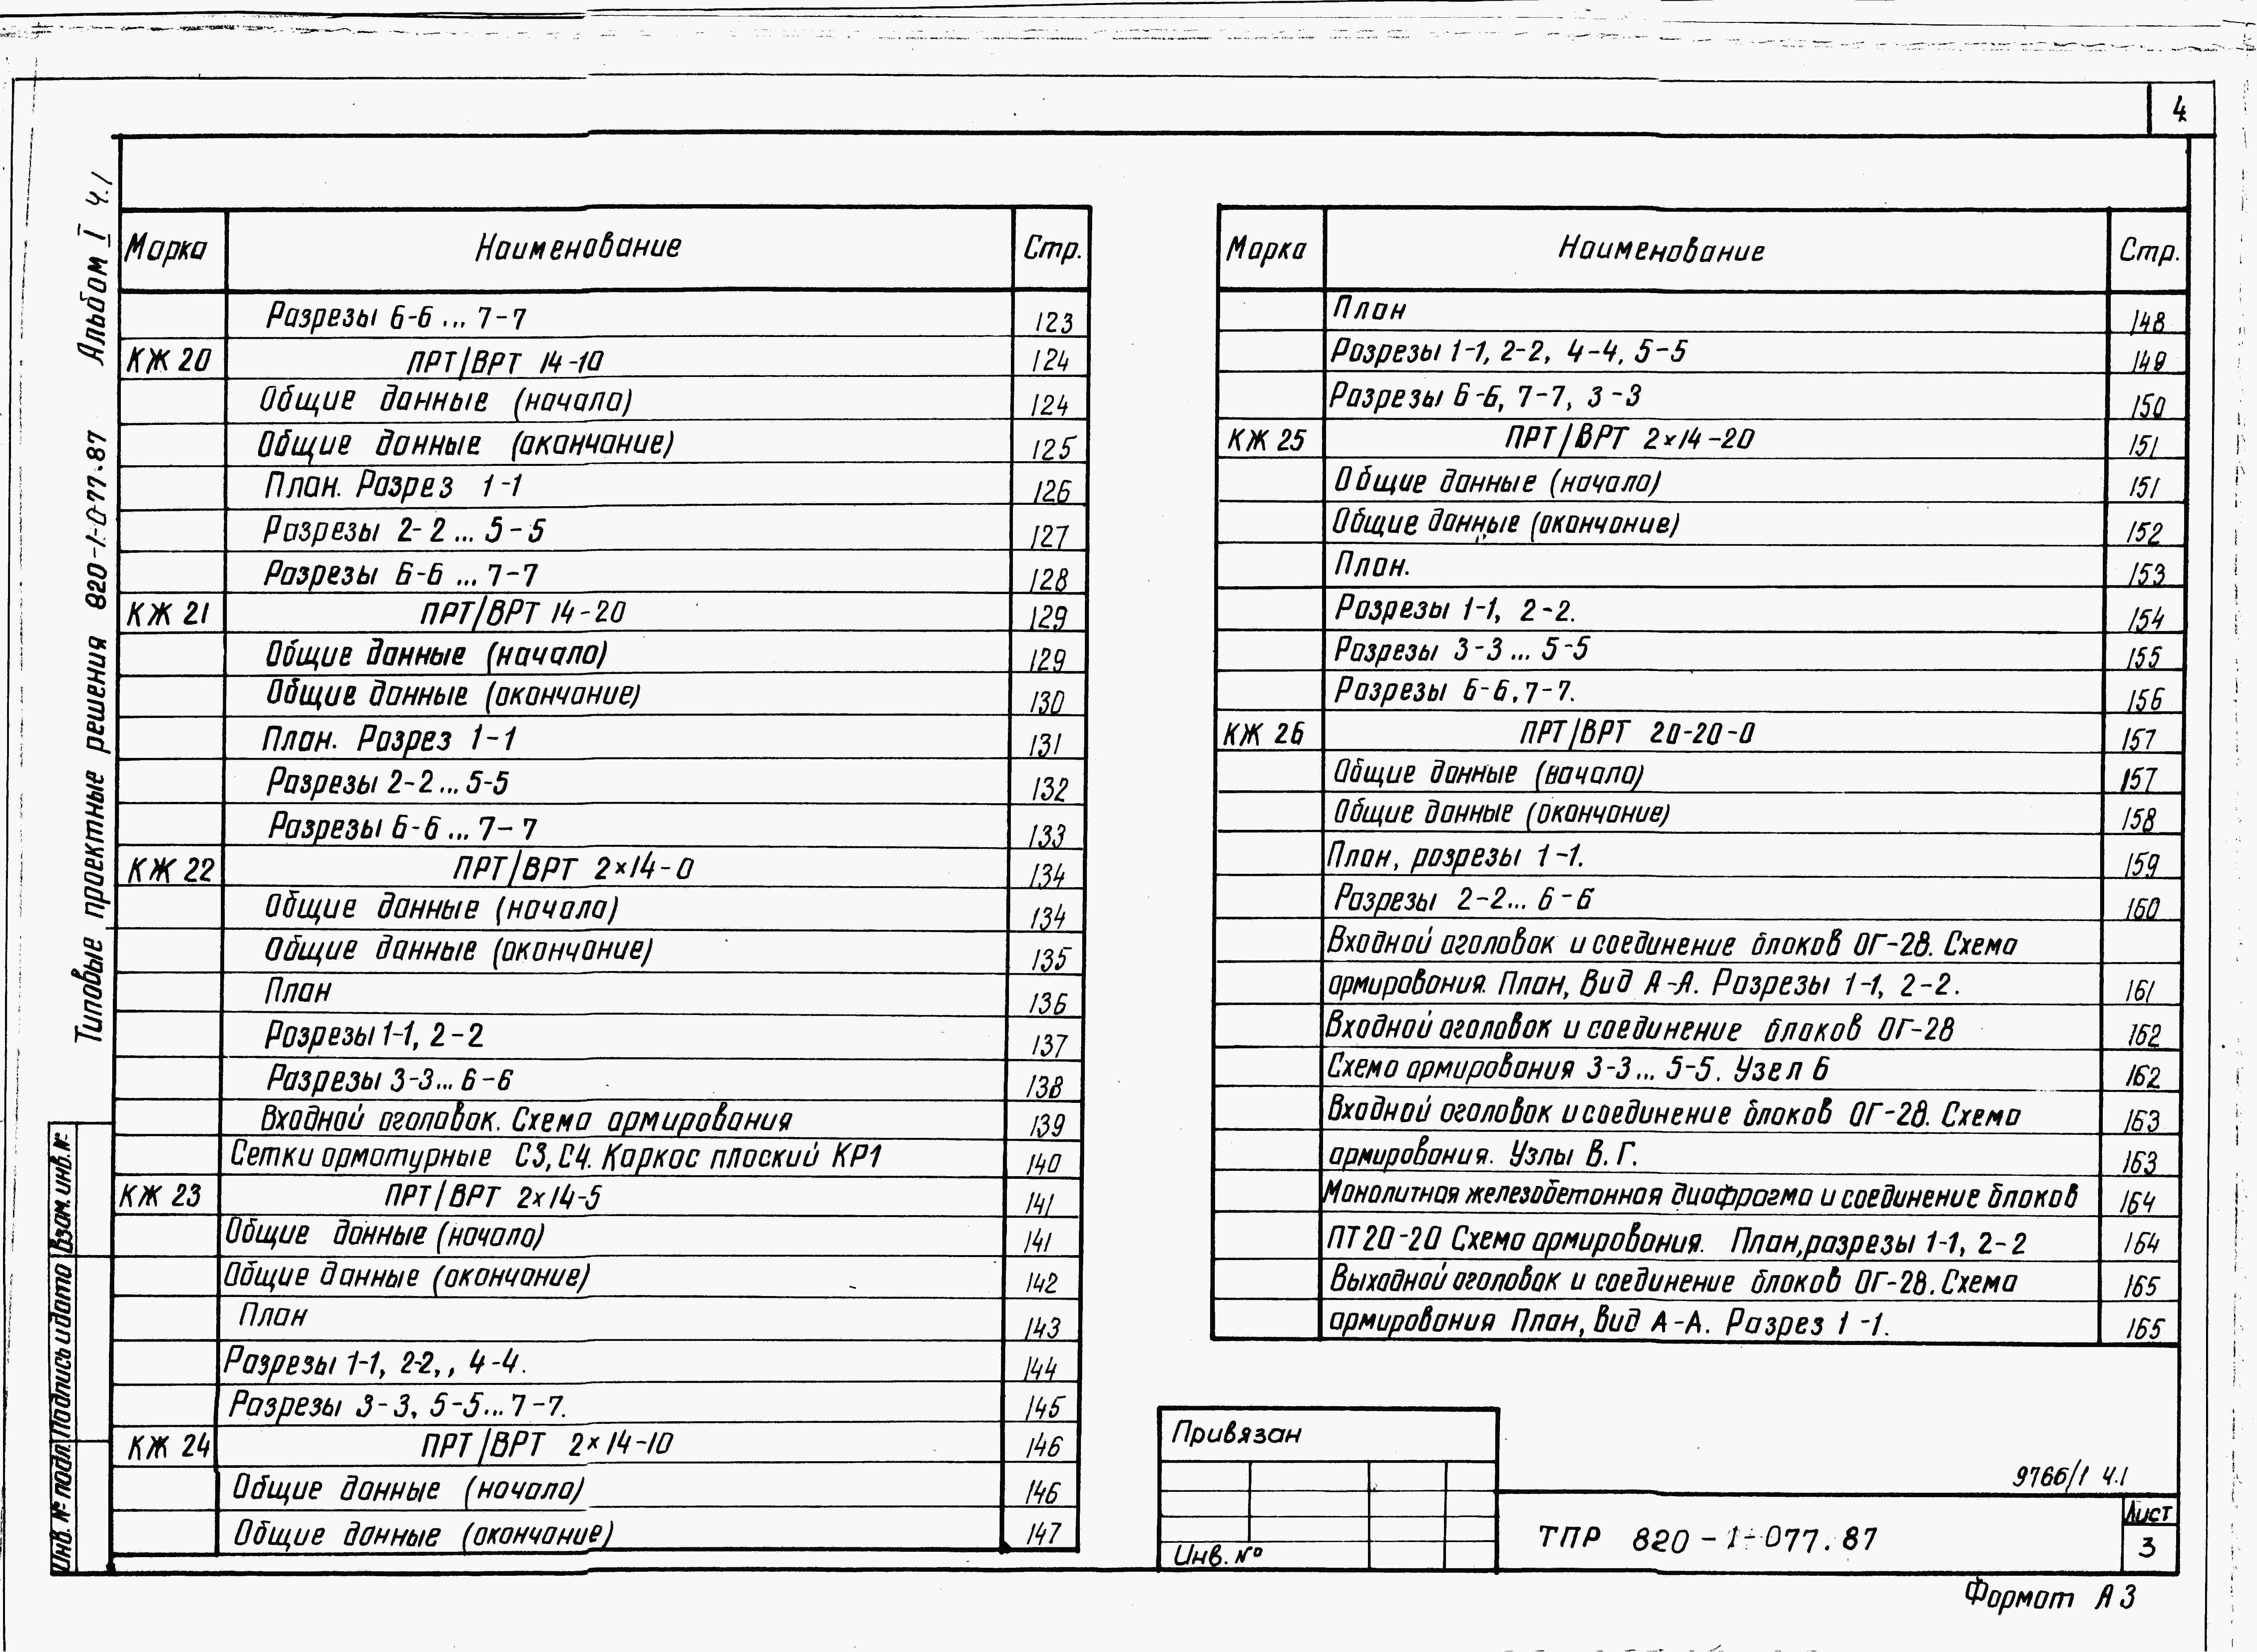 4
Альбом I ч.1
Типовые проектные решения 820-1-077.87
Марка Наименование Стр.
Разрезы 6-6 ... 7-7 123
КЖ 20 ПРТ/ВРТ 14-10 124
Общие данные (начало) 124
Общие данные (окончание) 125
План. Разрез 1-1 126
Разрезы 2-2 ... 5-5 127
Разрезы 6-6 ... 7-7 128
КЖ 21 ПРТ/ВРТ 14-20 129
Общие данные (начало) 129
Общие данные (окончание) 130
План. Разрез 1-1 131
Разрезы 2-2 ... 5-5 132
Разрезы 6-6 ... 7-7 133
КЖ 22 ПРТ/ВРТ 2×14-0 134
Общие данные (начало) 134
Общие данные (окончание) 135
План 136
Разрезы 1-1, 2-2 137
Разрезы 3-3... 6-6 138
Входной оголовок. Схема армирования 139
Сетки арматурные С3, С4. Каркас плоский КР1 140
КЖ 23 ПРТ/ВРТ 2×14-5 141
Общие данные (начало) 141
Общие данные (окончание) 142
План 143
Разрезы 1-1, 2-2, , 4-4. 144
Разрезы 3-3, 5-5...7-7. 145
КЖ 24 ПРТ/ВРТ 2×14-10 146
Общие данные (начало) 146
Общие данные (окончание) 147
Марка Наименование Стр.
План 148
Разрезы 1-1, 2-2, 4-4, 5-5 149
Разрезы 6-6, 7-7, 3-3 150
КЖ 25 ПРТ/ВРТ 2×14-20 151
Общие данные (начало) 151
Общие данные (окончание) 152
План. 153
Разрезы 1-1, 2-2. 154
Разрезы 3-3... 5-5 155
Разрезы 6-6, 7-7. 156
КЖ 26 ПРТ/ВРТ 20-20-0 157
Общие данные (начало) 157
Общие данные (окончание) 158
План, разрезы 1-1. 159
Разрезы 2-2... 6-6 160
Входной оголовок и соединение блоков ОГ-28. Схема
армирования. План, Вид А-А. Разрезы 1-1, 2-2. 161
Входной оголовок и соединение блоков ОГ-28 162
Схема армирования 3-3... 5-5. Узел Б 162
Входной оголовок и соединение блоков ОГ-28. Схема 163
армирования. Узлы В. Г. 163
Монолитная железобетонная диафрагма и соединение блоков 164
ПТ 20-20 Схема армирования. План, разрезы 1-1, 2-2 164
Выходной оголовок и соединение блоков ОГ-28. Схема 165
армирования План, Вид А-А. Разрез 1-1. 165
Инв. № подл. Подпись и дата Взам. инв. №
Привязан
Инв. №
9766/1 ч.1
ТПР 820-1-077.87
Лист
3
Формат А3